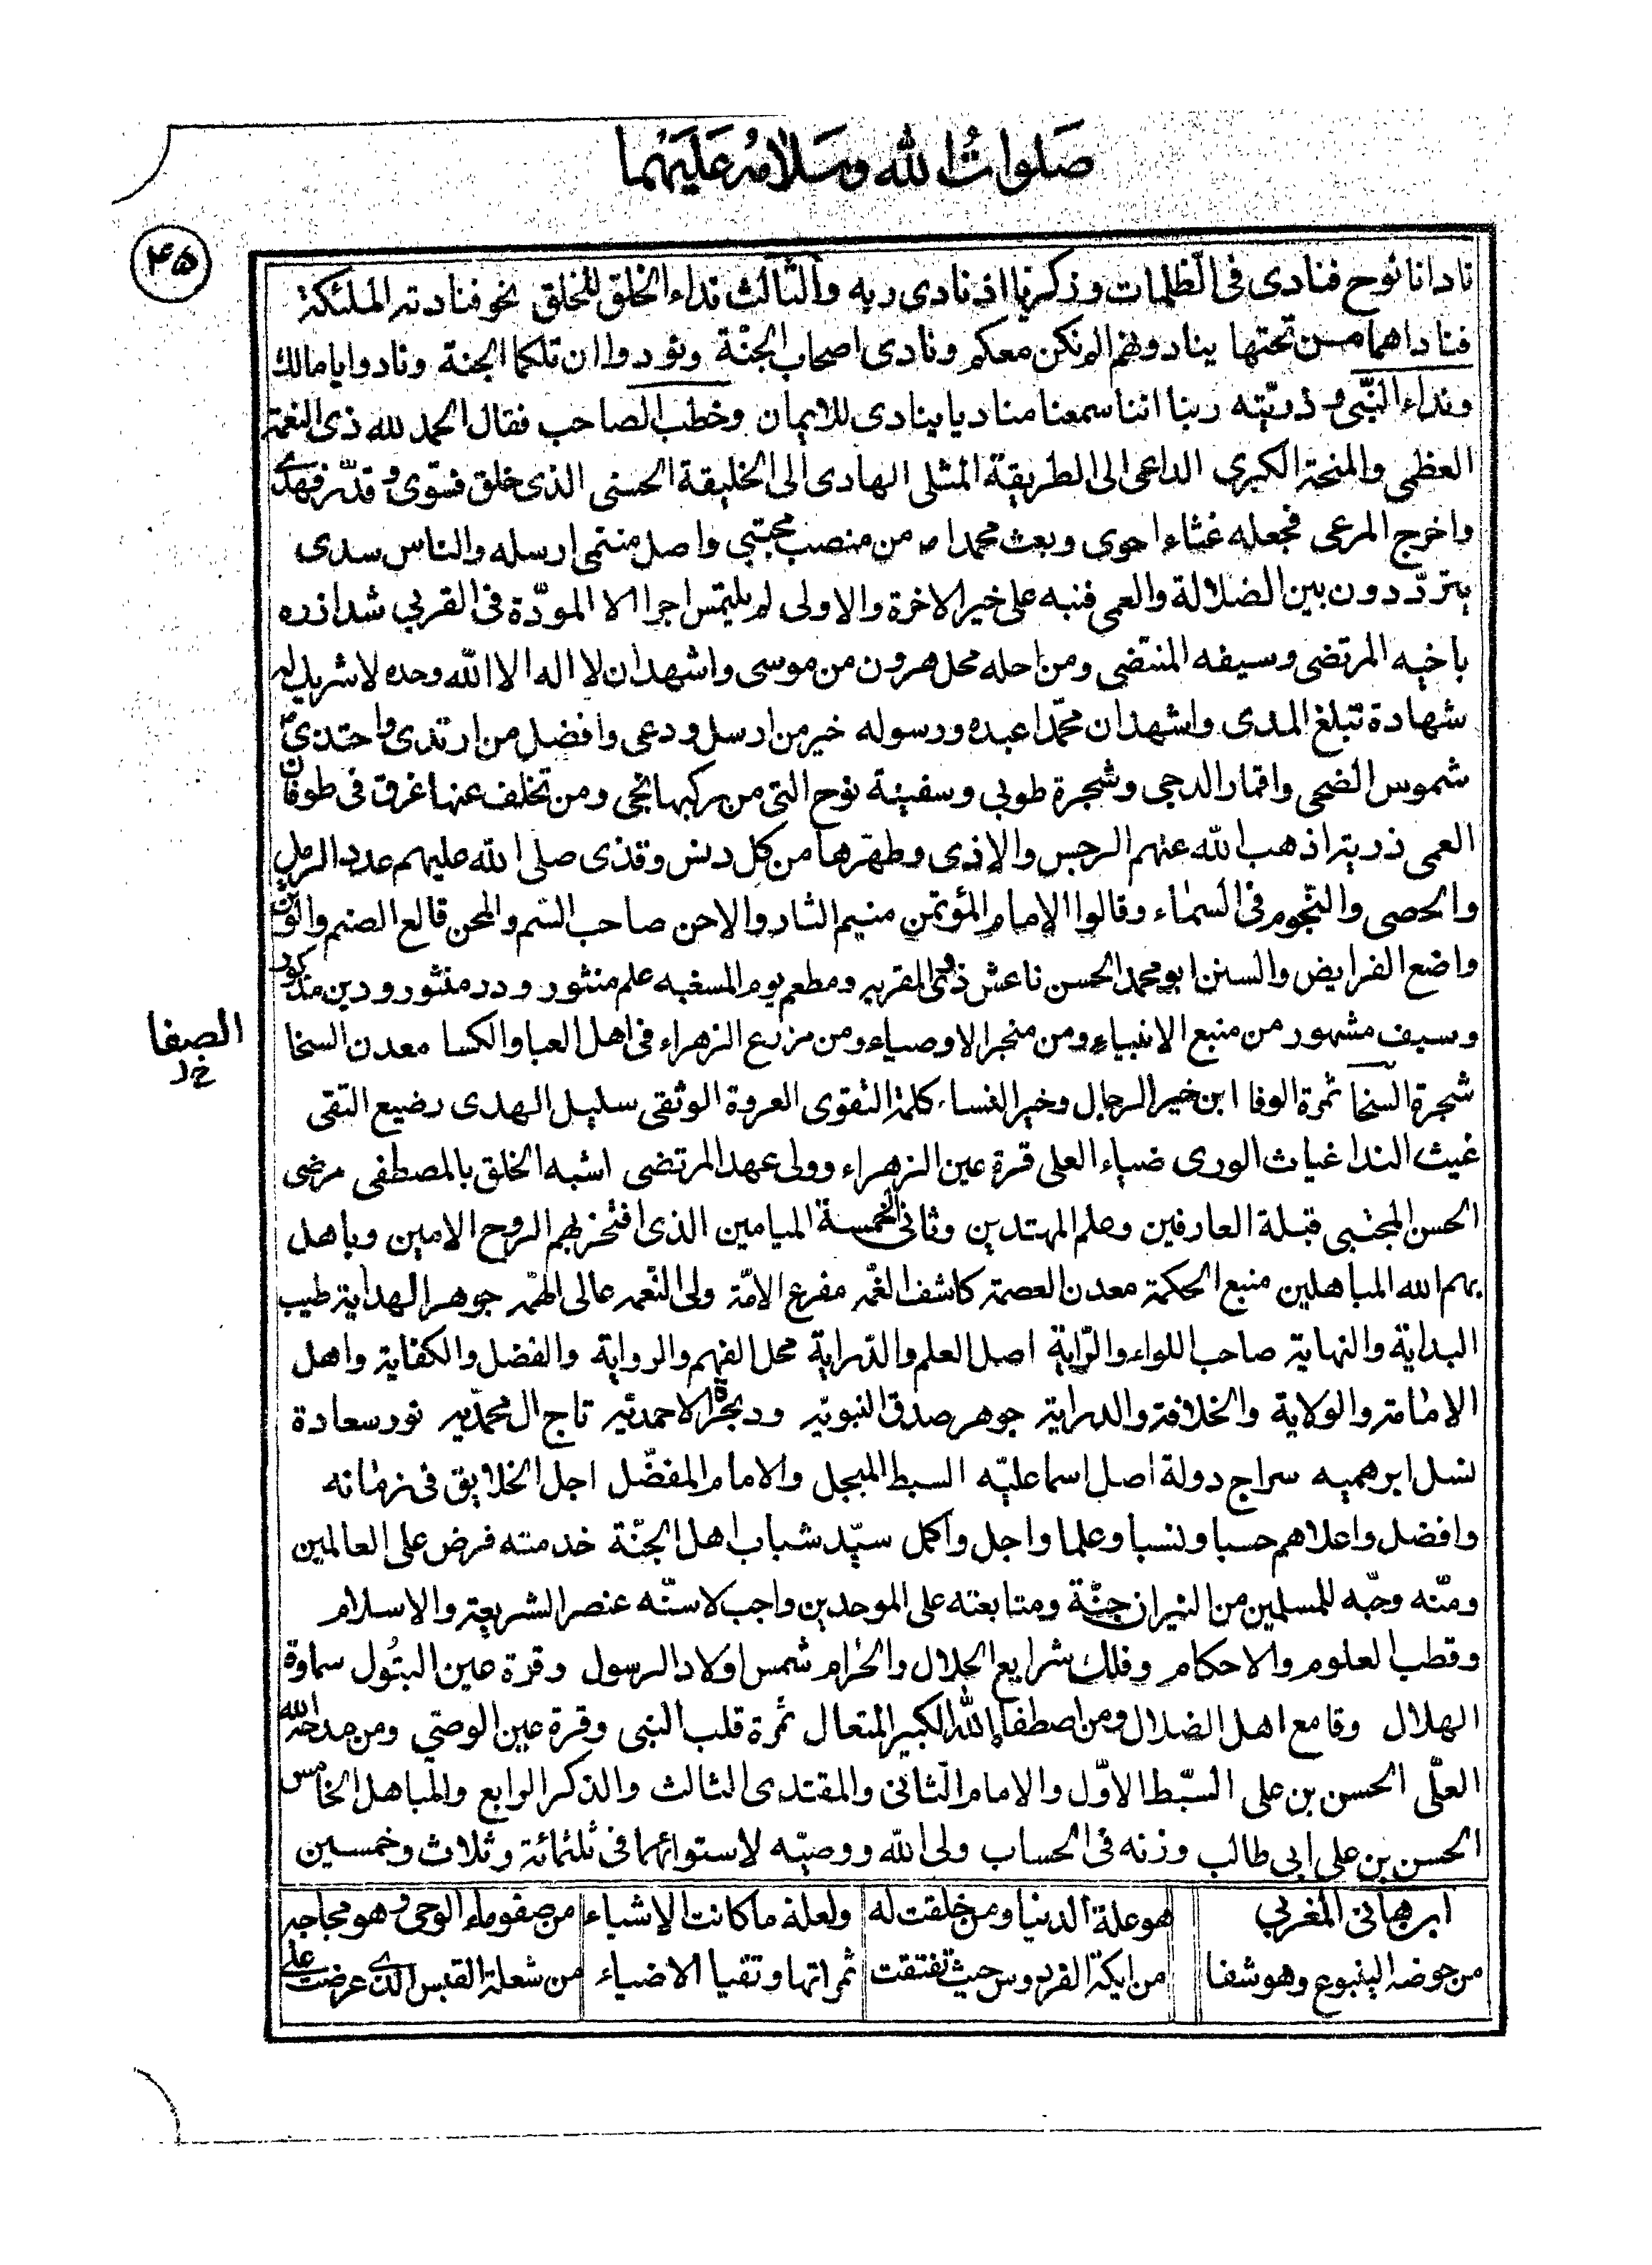 صَلواتُ الله وسَلامُه عَلَيهُما
۴۵
نادانا نوح فنادى فى الظلمات وزكريا اذ نادى ربه والثالث نداء الخلق للخلق نحو فنادته الملئكة
فناداهما من تحتها ينادونهم الم نكن معكم ونادى اصحاب الجنة ونودوا ان تلكما الجنة ونادوا يا مالك
ونداء النّبى وذريّته ربنا اننا سمعنا مناديا ينادى للايمان وخطب الصاحب فقال الحمد لله ذى النعمة
العظمى والمنحة الكبرى الداعى الى الطريقة المثلى الهادى الى الخليقة الحسنى الذى خلق فسوى وقدّر فهدى
واخرج المرعى فجعله غثاء احوى وبعث محمدا ص من منصب مجتبى واصل منتمى ارسله والناس سدى
يتردّدون بين الضلالة والعمى فنبه على خير الاخرة والاولى لم يلتمس اجرا الا المودّة فى القربى شد ازره
باخيه المرتضى وسيفه المنتضى ومن احله محل هرون من موسى واشهد ان لا اله الا الله وحده لا شريك له
شهادة تبلغ المدى واشهد ان محمّدا عبده ورسوله خير من ارسل ودعى وافضل من ارتدى واحتذى
شموس الضحى واقمار الدجى وشجرة طوبى وسفينة نوح التى من ركبها نجى ومن تخلف عنها غرق فى طوفان
العمى ذرية اذهب الله عنهم الرجس والاذى وطهّرها من كل دنس وقذى صلى الله عليهم عدد الرمل
والحصى والنّجوم فى السّماء وقالوا الامام المؤتمن منيم الثار والاحن صاحب السّم والمحن قالع الصنم والوثن
واضع الفرايض والسنن ابو محمد الحسن ناعش ذوى المقربه ومطعم يوم المسغبه علم منشور ودر منثور ودين مذكور
وسيف مشهور من منبع الانبياء ومن منجر الاوصياء ومن مزرع الزهراء فى اهل العبا والكسا معدن السخا
الصفا
خ ل
شجرة السخا ثمرة الوفا ابن خير الرجال وخير النساء كلمة التقوى العروة الوثقى سليل الهدى رضيع التقى
غيث الندا غياث الورى ضياء العلى قرة عين الزهراء وولى عهد المرتضى اشبه الخلق بالمصطفى مرضى
الحسن المجتبى قبلة العارفين وعلم المهتدين وثانى الخمسة الميامين الذى افتخر بهم الروح الامين وباهل
بهم الله المباهلين منبع الحكمة معدن العصمة كاشف الغمّه مفزع الامّة ولى النّعمه عالى الهمّه جوهر الهداية طيب
البداية والنهاية صاحب اللواء والرّاية اصل العلم والدّراية محل الفهم والرواية والفضل والكفاية واهل
الامامة والولاية والخلافة والدراية جوهر صدق النبويّه ودر بحرة الاحمديّه تاج ال محمّديه نور سعادة
نسل ابرهميه سراج دولة اصل اسماعليّه السبط المبجل والامام المفضّل اجل الخلايق فى زمانه
وافضل واعلاهم حسبا ونسبا وعلما واجل واكمل سيّد شباب اهل الجنّة خدمته فرض على العالمين
ومنّه وحبّه للمسلمين من النيران جنّة ومتابعته على الموحدين واجب لاسنّه عنصر الشريعة والاسلام
وقطب العلوم والاحكام وفلك شرايع الحلال والحرام شمس اولاد الرسول وقرة عين البتُول سماوة
الهلال وقامع اهل الضلال ومن اصطفاه الله الكبير المتعال ثمرة قلب النبى وقرة عين الوصى ومن مدحه الله
العلّى الحسن بن على السّبط الاوّل والامام الثّانى والمقتدى الثالث والذكر الرابع والمباهل الخامس
الحسن بن على ابى طالب وزنه فى الحساب ولى الله ووصيّه لاستوائهما فى ثلثمائة وثلاث وخمسين
ابن هانى المغربى هو علة الدنيا ومن خلقت له ولعلة ما كانت الاشياء من صفو ماء الوحى وهو مجاجه
من حوضه الينبوع وهو شفا من ايكة الفردوس حيث تفتقت ثمراتها وتفيا الافياء من شعلة القبس الذى عرضت على